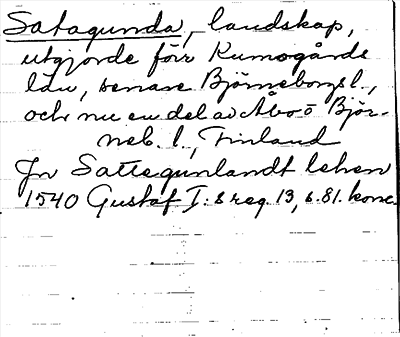 Satagunda, landskap,
utgjorde förr Kumogårds
län, senare Björneborgsl.,
och nu en del av Åbo o Björ-
neb. l., Finland
Jn Sattegunlandt lehen
1540 Gustaf I:s reg. 13, s. 81. konc.